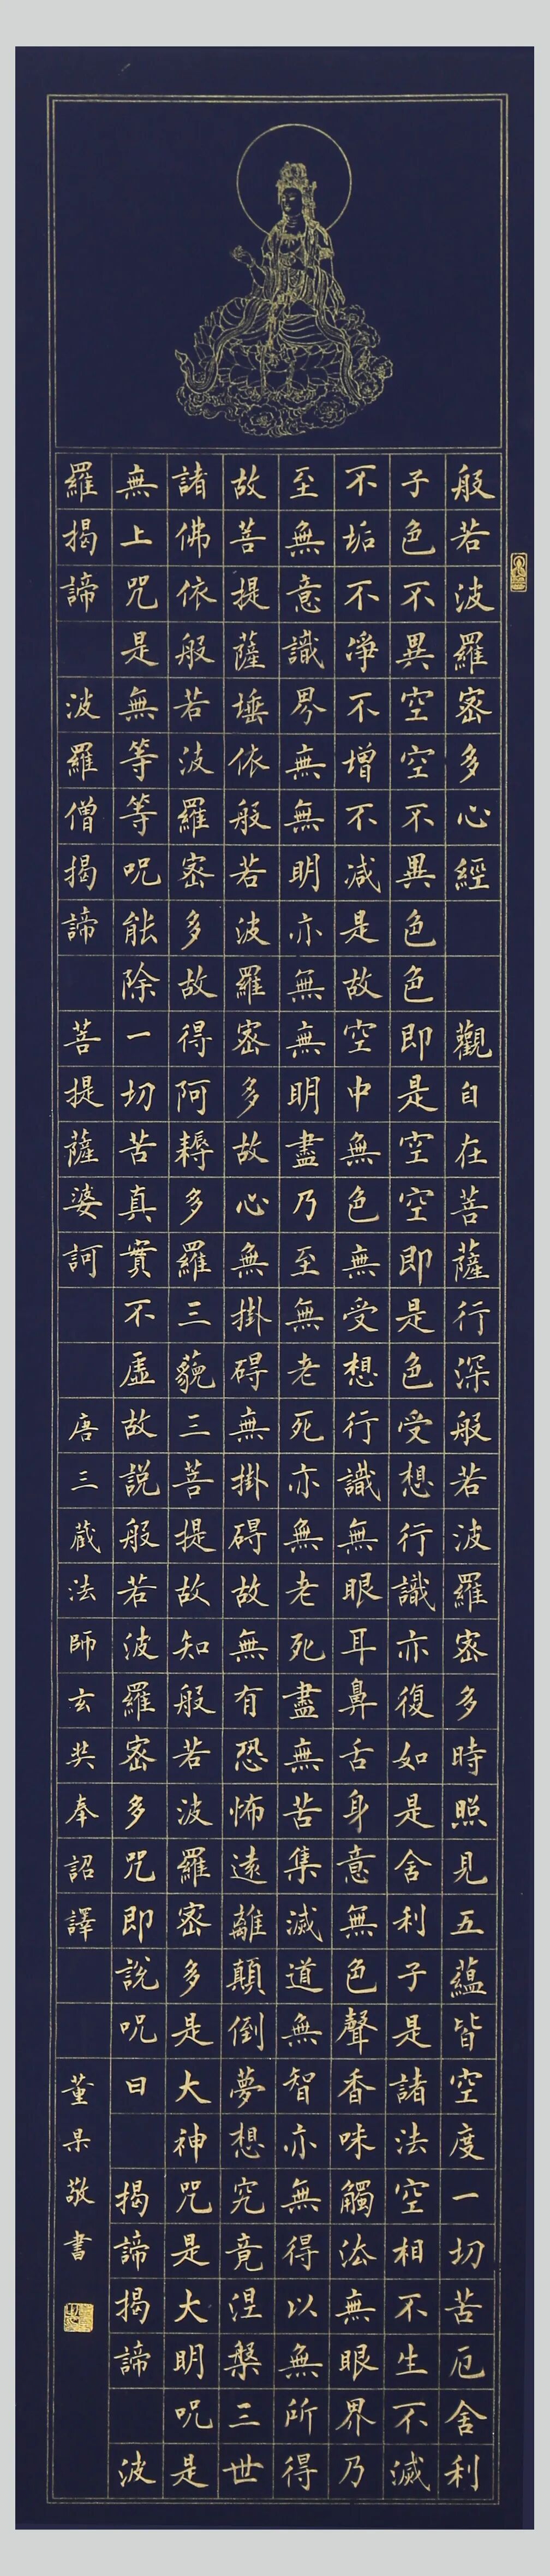 般若波羅密多心經 觀自在菩薩行深般若波羅密多時照見五蘊皆空度一切苦厄舍利
子色不異空空不異色色即是空空即是色受想行識亦復如是舍利子是諸法空相不生不滅
不垢不淨不增不減是故空中無色無受想行識無眼耳鼻舌身意無色聲香味觸法無眼界乃
至無意識界無無明亦無無明盡乃至無老死亦無老死盡無苦集滅道無智亦無得以無所得
故菩提薩埵依般若波羅密多故心無掛碍無掛碍故無有恐怖遠離顛倒夢想究竟涅槃三世
諸佛依般若波羅密多故得阿耨多羅三藐三菩提故知般若波羅密多是大神咒是大明呪是
無上咒是無等等呪能除一切苦真實不虛故説般若波羅密多咒即說呪曰 揭諦揭諦 波
羅揭諦 波羅僧揭諦 菩提薩婆訶 唐三藏法師玄奘奉詔譯
董杲敬書